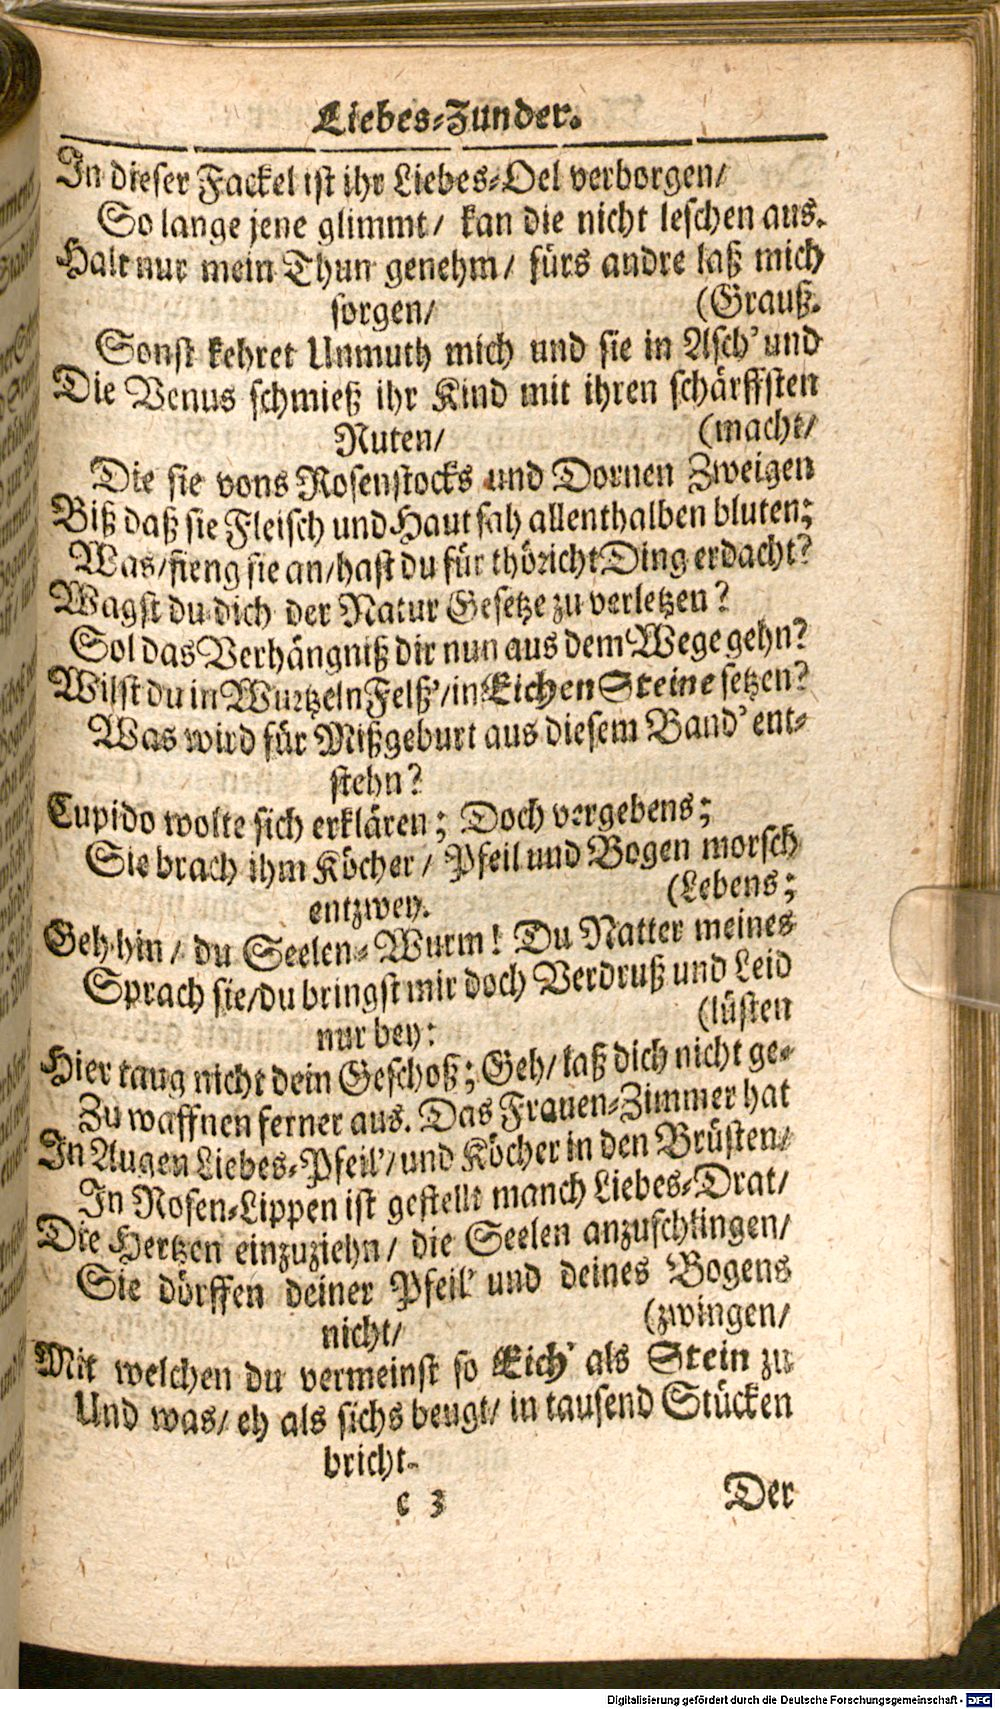 Liebes-Zunder.
In dieser Fackel ist ihr Liebes-Oel verborgen/
So lange jene glimmt/ kan die nicht leschen aus.
Halt nur mein Thun genehm/ fürs andre laß mich
sorgen/ (Grauß.
Sonst kehret Unmuth mich und sie in Asch' und
Die Venus schmieß ihr Kind mit ihren schärffsten
Ruten/ (macht/
Die sie vons Rosenstocks und Dornen Zweigen
Biß daß sie Fleisch und Haut sah allenthalben bluten;
Was/ fieng sie an/ hast du für thöricht Ding erdacht?
Wagst du dich der Natur Gesetze zu verletzen?
Sol das Verhängniß dir nun aus dem Wege gehn?
Wilst du in Wurtzeln Felß'/ in Eichen Steine setzen?
Was wird für Mißgeburt aus diesem Band' ent-
stehn?
Cupido wolte sich erklären; Doch vergebens;
Sie brach ihm Köcher/ Pfeil und Bogen morsch
entzwey. (Lebens;
Geh hin/ du Seelen-Wurm! Du Natter meines
Sprach sie/ du bringst mir doch Verdruß und Leid
nur bey: (lüsten
Hier taug nicht dein Geschoß; Geh/ laß dich nicht ge-
Zu waffnen ferner aus. Das Frauen-Zimmer hat
In Augen Liebes-Pfeil'/ und Köcher in den Brüsten/
In Rosen-Lippen ist gestellt manch Liebes-Drat/
Die Hertzen einzuziehn/ die Seelen anzuschlingen/
Sie dörffen deiner Pfeil' und deines Bogens
nicht/ (zwingen/
Mit welchen du vermeinst so Eich' als Stein zu
Und was/ eh als sichs beugt/ in tausend Stücken
bricht.
c 3 Der
Digitalisierung gefördert durch die Deutsche Forschungsgemeinschaft - DFG